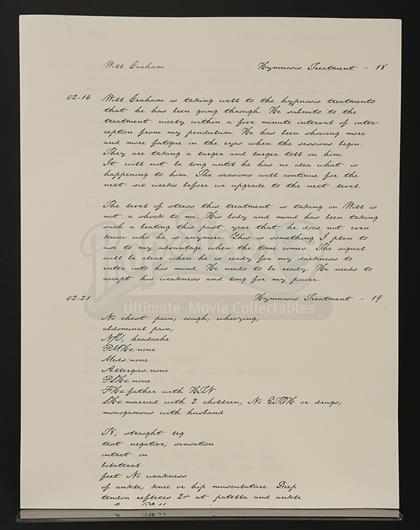 Will Graham Hymnosis Treatment - 18
02-14 Will Graham is taking well to the hypnosis treatments
that he has been going through. He submits to the
treatment nicely within a five minute interval of inter-
ception from my pendulum. He has been showing more
and more fatigue in the eyes when the sessions begin.
They are taking a larger and larger toll on him.
It will not be long until he has no idea what is
happening to him. The sessions will continue for the
next six weeks before we upgrade to the next level.
The level of stress this treatment is taking on Will is
not a shock to me. His body and mind has been taking
such a beating this past year that he does not even
know who he is anymore. This is something I plan to
use to my advantage when the time comes. The signal
will be clear when he is ready for my darkness to
enter into his mind. He needs to be ready. He needs to
accept his weakness and long for my power.
02-21 Hymnosis Treatment - 19
Ultimate Movie Collectibles
No chest pain, cough, wheezing,
abdominal pain,
headache
PMHx: none
Meds: none
Allergies: none
PSHx: none
FHx: father with HTN
SHx: married with 2 children, No ETOH or drugs,
monogamous with husband
straight leg
test negative; sensation
intact on
bilateral
feet No weakness
of ankle, knee or hip musculature. Deep
tendon reflexes 2+ at patella and ankle